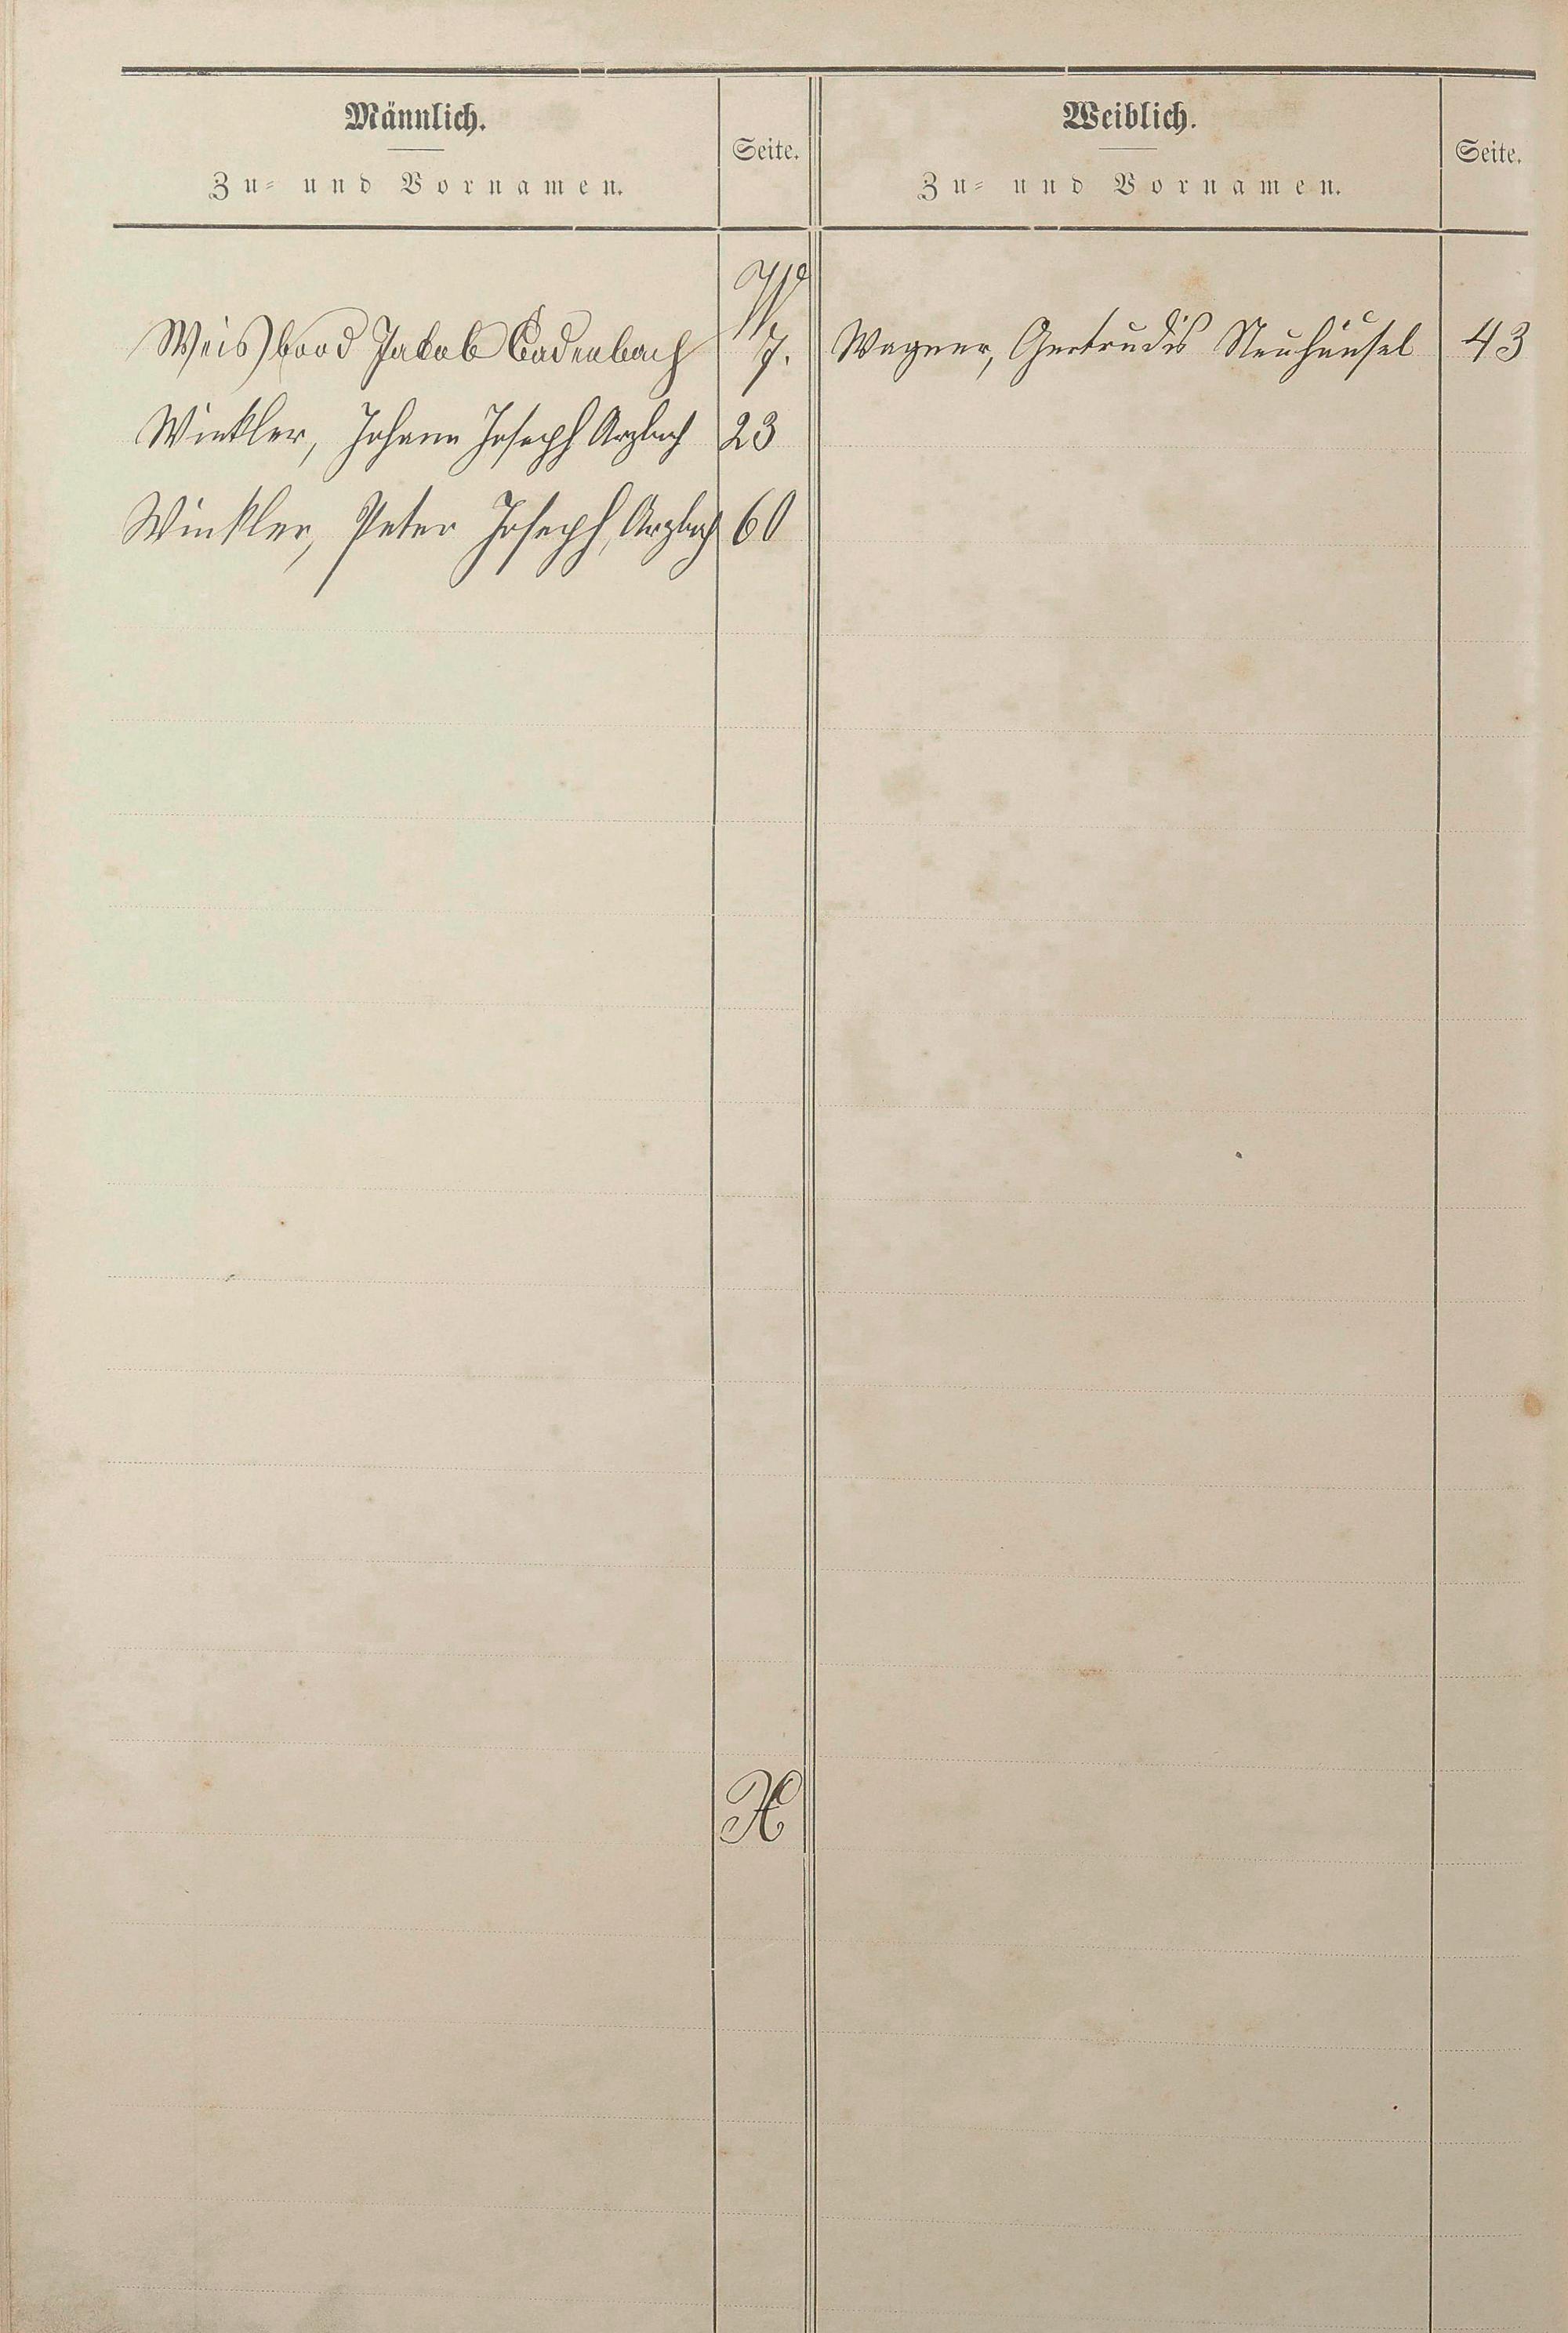 Männlich.
Zu- und Vornamen.
Seite.
Weiblich.
Zu- und Vornamen.
Seite.
W.
Weisbrod Jakob Cadenbach 7.
Wagner, Gertrudis Neuhäusel 43
Winkler, Johann Joseph Arzbach 23
Winkler, Peter Joseph, Arzbach 60
X